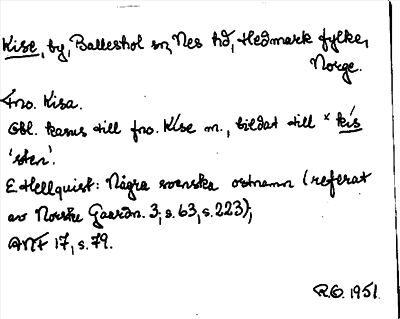 Kise, by, Balleshol sn, Nes hd, Hedmark fylke,
Norge.
Fno. Kisa.
Obl. kasus till fno. Kíse m., bildat till *kís
'sten'.
E. Hellquist: Några svenska ostnamn (referat
av Norske Gaardn. 3, s. 63, s. 223),
ANF 17, s. 79.
R.O. 1951.